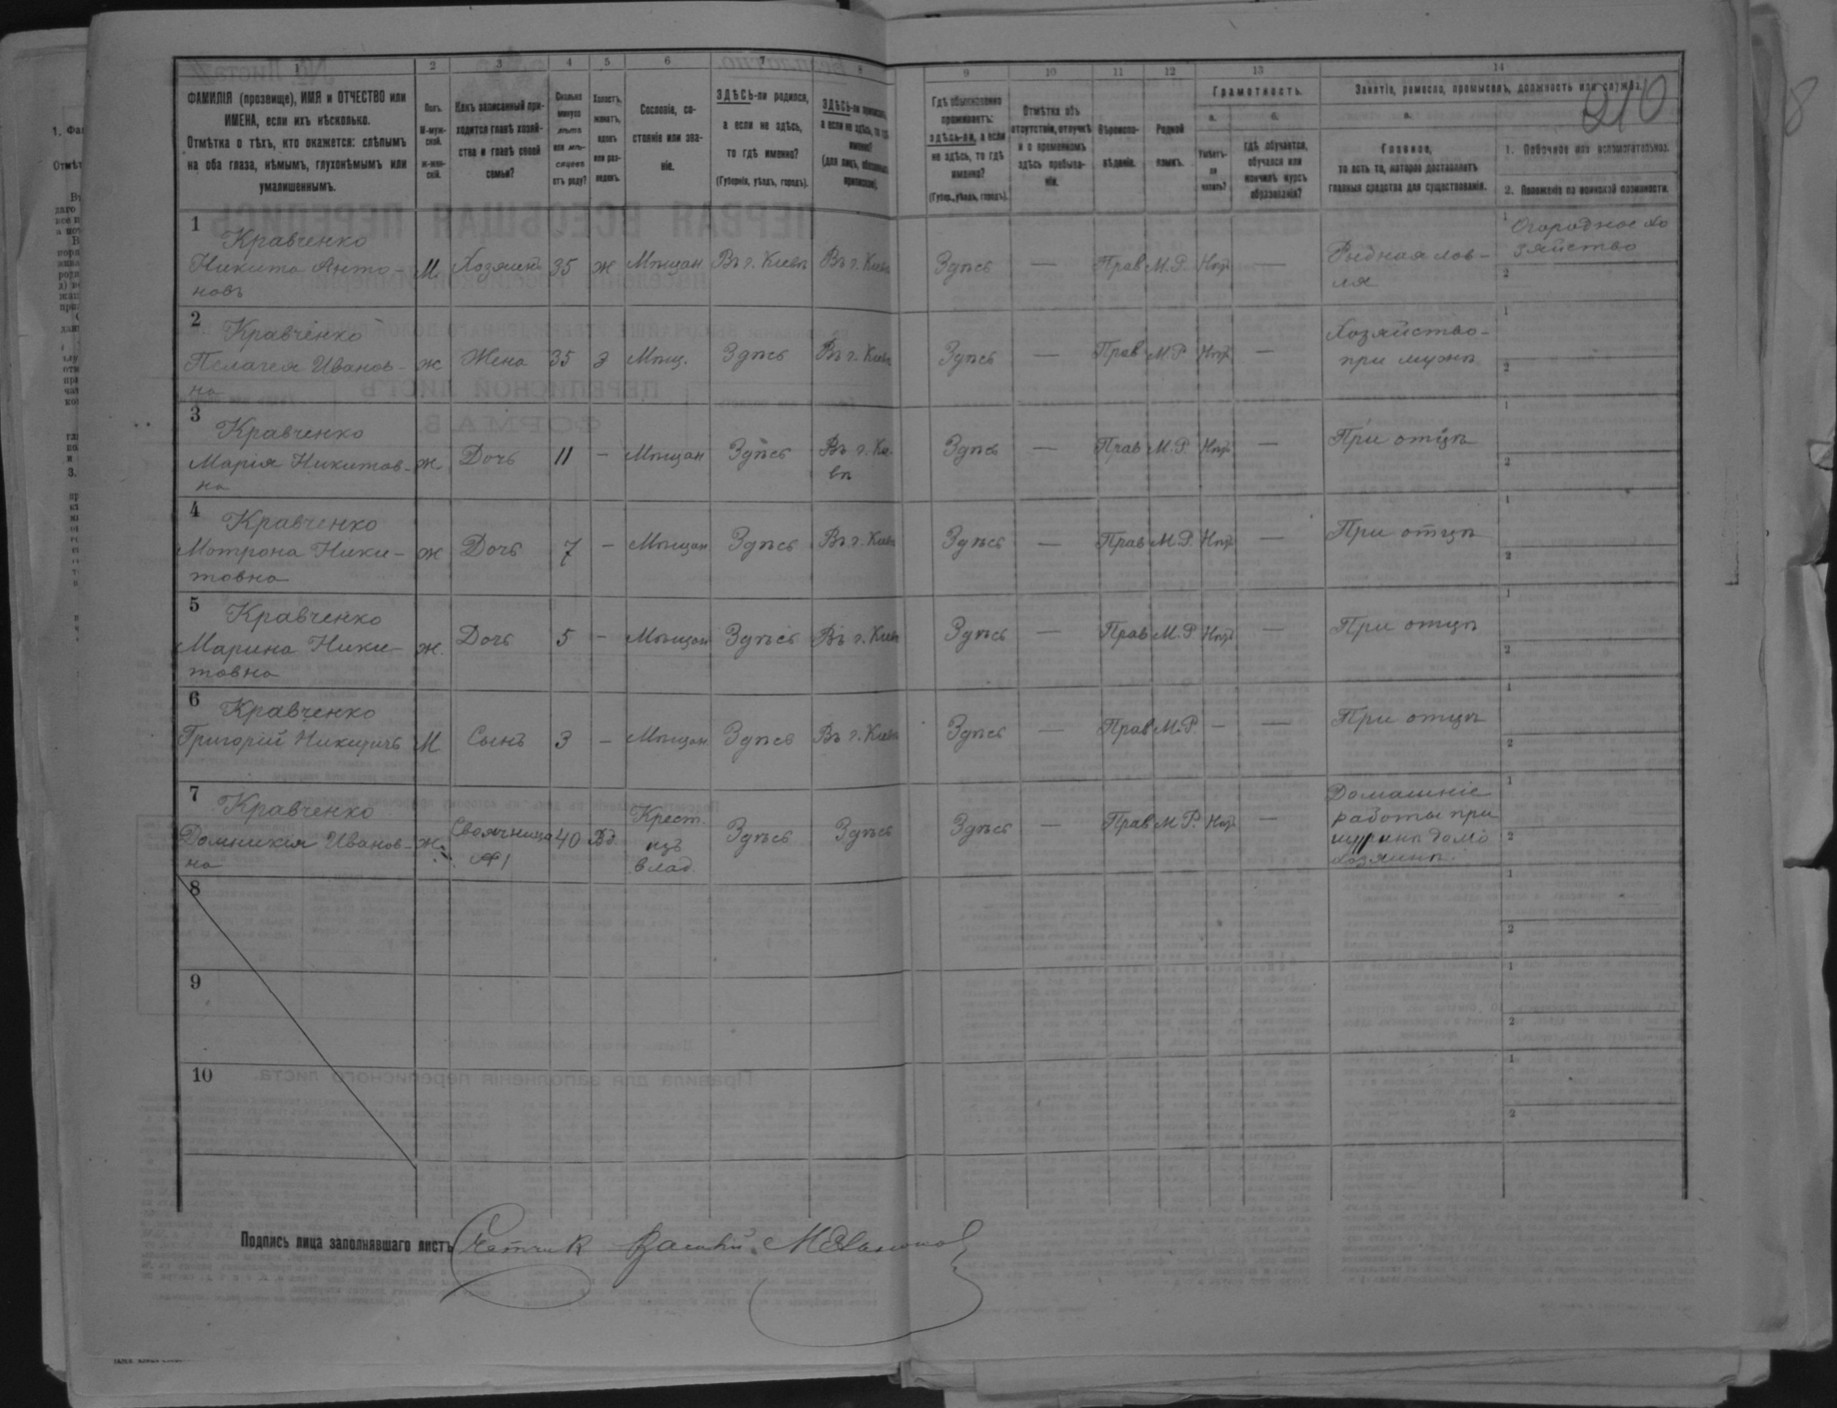 210
1 2 3 4 5 6 7 8 9 10 11 12 13 14
ФАМИЛІЯ (прозвище), ИМЯ и ОТЧЕСТВО или
ИМЕНА, если ихъ нѣсколько.
Отмѣтка о тѣхъ, кто окажется: слѣпымъ
на оба глаза, нѣмымъ, глухонѣмымъ или
умалишеннымъ.
Полъ.
М-муж-
ской.
Ж-жен-
скій.
Какъ записанный при-
ходится главѣ хозяй-
ства и главѣ своей
семьи?
Сколько
минуло
лѣтъ
или мѣ-
сяцевъ
отъ роду?
Холостъ,
женатъ,
вдовъ
или раз-
веденъ.
Сословіе, со-
стояніе или зва-
ніе.
ЗДѢСЬ-ли родился,
а если не здѣсь,
то гдѣ именно?
(Губернія, уѣздъ, городъ).
ЗДѢСЬ-ли приписанъ,
а если не здѣсь, то гдѣ
именно?
(для лицъ, обязанныхъ
припискою).
Гдѣ обыкновенно
проживаетъ:
здѣсь-ли, а если
не здѣсь, то гдѣ
именно?
(Губер., уѣздъ, городъ).
Отмѣтка объ
отсутствіи, отлучкѣ
и о временномъ
здѣсь пребыва-
ніи.
Вѣроиспо-
вѣданіе.
Родной
языкъ.
Грамотность.
а.
Умѣетъ-
ли
читать?
б.
гдѣ обучается,
обучался или
кончилъ курсъ
образованія?
Занятіе, ремесло, промыселъ, должность или служба.
а.
Главное,
то есть то, которое доставляетъ
главныя средства для существованія.
1. Побочное или вспомогательное.
2. Положеніе по воинской повинности.
1
Кравченко
Никита Анто-
новъ
М. Хозяинъ 35 ж Мѣщан Въ г. Кіевѣ Въ г. Кіевѣ Здѣсь — Прав М.Р. Нѣтъ — Рыбная лов-
ля
1 Огородное хо
зяйство
2
2
Кравченко
Пелагея Иванов-
на
ж Жена 35 з Мѣщ. Здѣсь Въ г. Кіевѣ Здѣсь — Прав М.Р. Нѣтъ — Хозяйство-
при мужѣ
1
2
3
Кравченко
Марія Никитов-
на
ж. Дочь 11 — Мѣщан Здѣсь Въ г. Кіе-
вѣ
Здѣсь — Прав М.Р. Нѣтъ — При отцѣ
1
2
4
Кравченко
Мотрона Ники-
товна
ж Дочь 7 — Мѣщан Здѣсь Въ г. Кіевѣ Здѣсь — Прав М.Р. Нѣтъ — При отцѣ
1
2
5
Кравченко
Марина Ники-
товна
ж. Дочь 5 — Мѣщан Здѣсь Въ г. Кіевѣ Здѣсь — Прав М.Р. Нѣтъ — При отцѣ
1
2
6
Кравченко
Григорій Никитичъ
М Сынъ 3 — Мѣщан Здѣсь Въ г. Кіевѣ Здѣсь — Прав М.Р. — — При отцѣ
1
2
7
Кравченко
Домникія Иванов-
на
ж. Своячница
№ 1
40 Вд. Крест.
изъ
влад.
Здѣсь Здѣсь Здѣсь — Прав М.Р. Нѣтъ — Домашніе
работы при
шуринѣ домо
хозяинѣ.
1
2
8
1
2
9
1
2
10
1
2
Подпись лица заполнявшаго листъ Счетчик Василій